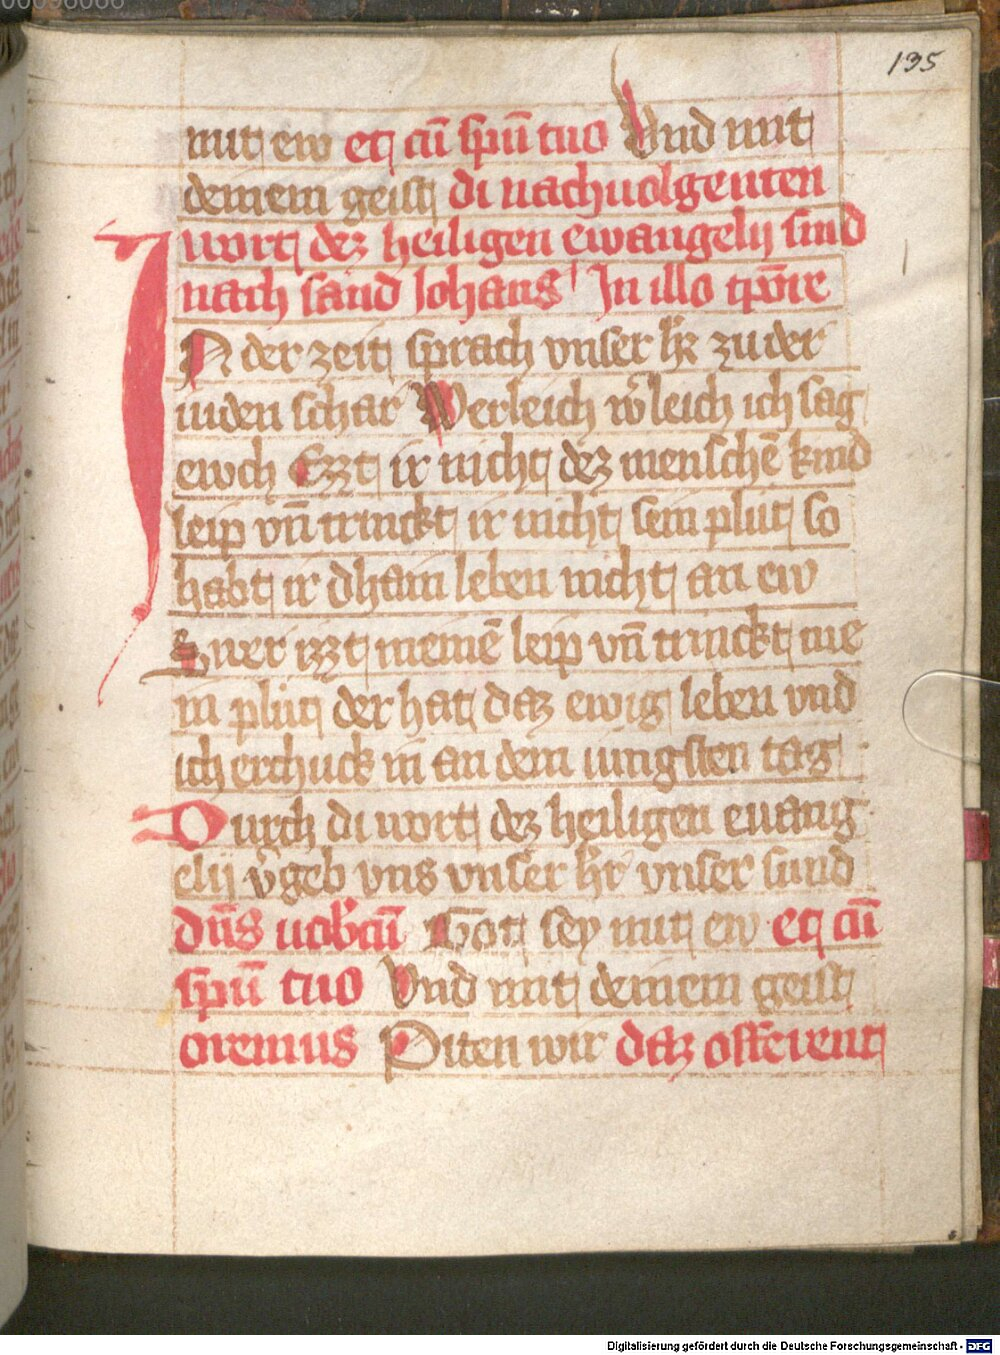 135
mit ew et cū spū tuo Vnd mit
deinem geist di nachuolgenten
wort dez heiligen ewangelij sind
nach sand Johans Jn illo tp̄re
JN der zeit sprach vnser h̄r zu der
iuden schar Werleich w̄leich ich sag
ewch Ezzt ir nicht dez menschē kind
leip vn̄ trinckt ir nicht sein plut so
habt ir dhain leben nicht an ew
Swer izzt meinē leip vn̄ trinckt me
in plut der hat daz ewig leben vnd
ich erchuck in an dem iungsten tag
Durch di wort dez heiligen ewang
elij v̄geb vns vnser h̄r vnser sund
dn̄s uobcū Got sey mit ew et cū
spū tuo Vnd mit deinem geist
oremus Piten wir daz offerent
Digitalisierung gefördert durch die Deutsche Forschungsgemeinschaft - DFG